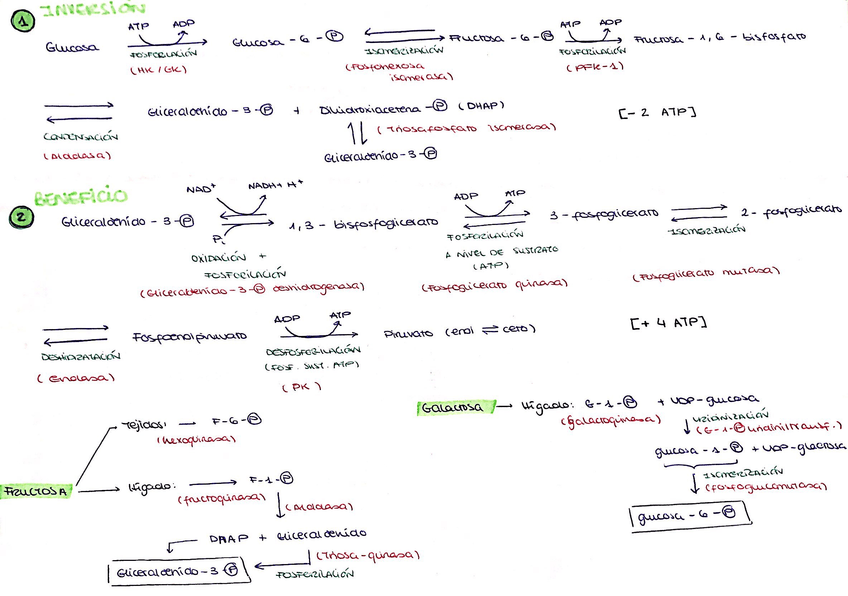 1 INVERSIÓN
ATP ADP ATP ADP
Glucosa Glucosa - 6 - P Fructosa - 6 - P Fructosa - 1,6 - bisfosfato
FOSFORILACIÓN ISOMERIZACIÓN FOSFORILACIÓN
(HK / GK) (fosfohexosa isomerasa) (PFK-1)
Gliceraldehído - 3 - P + Dihidroxiacetona - P (DHAP) [- 2 ATP]
CONDENSACIÓN (Triosafosfato isomerasa)
(Aldolasa) Gliceraldehído - 3 - P
2 BENEFICIO
NAD+ NADH + H+ ADP ATP
Gliceraldehído - 3 - P 1,3 - bisfosfoglicerato 3 - fosfoglicerato 2 - fosfoglicerato
Pi FOSFORILACIÓN ISOMERIZACIÓN
OXIDACIÓN + A NIVEL DE SUSTRATO
FOSFORILACIÓN (ATP)
(Gliceraldehído - 3 - P deshidrogenasa) (Fosfoglicerato quinasa) (Fosfoglicerato mutasa)
ADP ATP
Fosfoenolpiruvato Piruvato (enol ⇌ ceto) [+ 4 ATP]
DESHIDRATACIÓN DESFOSFORILACIÓN
(FOSF. SUST. ATP)
(Enolasa) (PK)
Galactosa → Hígado: G - 1 - P + UDP-glucosa
(galactoquinasa) URIDINIZACIÓN
(G-1-P uridiniltransf.)
glucosa - 1 - P + UDP-glactosa
ISOMERIZACIÓN
(fosfoglucomutasa)
glucosa - 6 - P
FRUCTOSA
Tejidos: → F - 6 - P
(hexoquinasa)
Hígado: → F - 1 - P
(fructoquinasa) (Aldolasa)
DHAP + Gliceraldehído
(Triosa - quinasa)
Gliceraldehído - 3 - P FOSFORILACIÓN